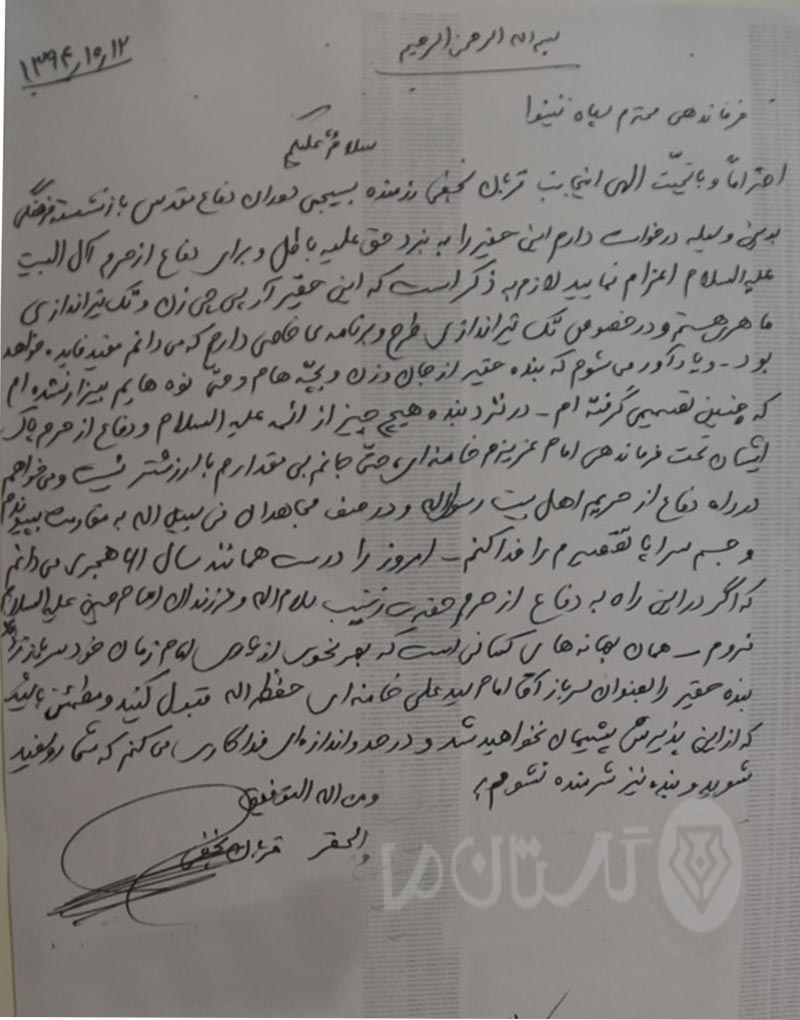 بسم اله الرحمن الرحیم
۱۳۹۴,۱۰,۱۲
فرماندهی محترم سپاه نینوا
سلام علیکم
احتراماً و با تحیّت الهی اینجانب قربان نجفی رزمنده بسیجی دوران دفاع مقدس بازنشسته فرهنگی
بدینوسیله درخواست دارم این حقیر را به نبرد حق علیه باطل و برای دفاع از حرم آل البیت
علیه السلام اعزام نمایید لازم به ذکر است که این حقیر آر پی جی زن و تک تیراندازی
ماهر هستم و در خصوص تک تیراندازی طرح و برنامه ی خاصی دارم که می دانم مفید فایده خواهد
بود - و یادآور می شوم که بنده حقیر از جان و زن و بچّه هام و حتّی نوه هایم بیزار نشده ام
که چنین تصمیمی گرفته ام - در نزد بنده هیچ چیز از ائمه علیه السلام و دفاع از حرم پاک
ایشان تحت فرماندهی امام عزیزم خامنه ای، حتّی جانم بی مقدارم باارزشتر نیست و می خواهم
در راه دفاع از حریم اهل بیت رسول اله و در صف مجاهدان فی سبیل اله به مقاومت بپیوندم
و جسم سراپا تقصیرم را فدا کنم - امروز را درست همانند سال ۶۱ هجری می دانم
که اگر در این راه به دفاع از حرم حضرت زینب سلام اله و فرزندان امام حسین علیه السلام
نروم - همان بهانه های کسانی است که بنحوی از یاری امام زمان خود سرباز زدند
بنده حقیر را بعنوان سرباز آقا امام سید علی خامنه ای حفظه اله قبول کنید و مطمئن باشید
که از این پذیرش پشیمان نخواهید شد و در حد و اندازه ای فداکاری می کنم که شما روسفید
شوید و بنده نیز شرمنده نشوم
و من اله التوفیق
الحقر قربان نجفی
گلستان ما